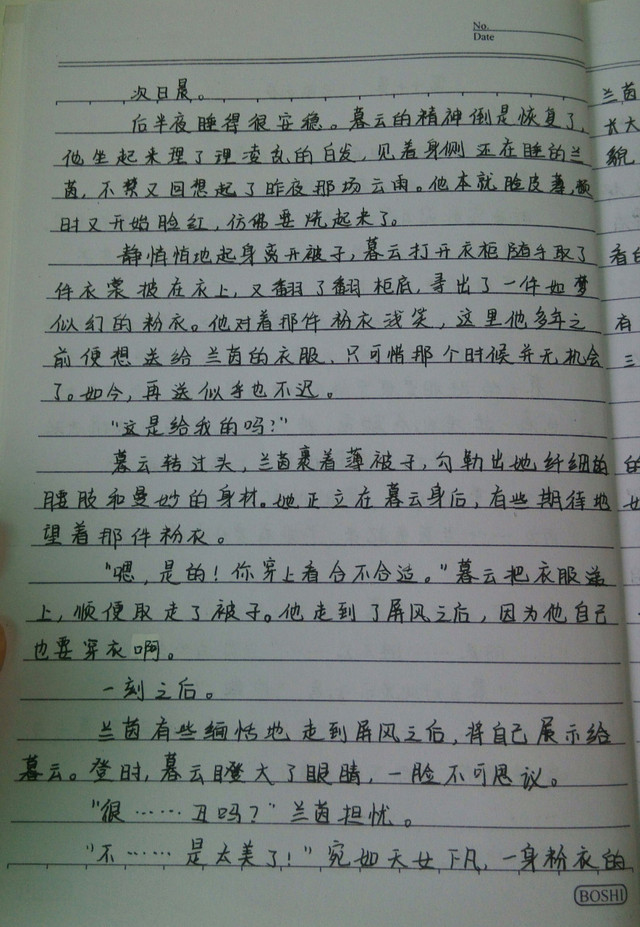 No.
Date
次日晨。
后半夜睡得很安稳。暮云的精神倒是恢复了,
他坐起来理了理凌乱的白发,见着身侧还在睡的兰
茵,不禁又回想起了昨夜那场云雨。他本就脸皮薄,顿
时又开始脸红,仿佛要烧起来了。
静悄悄地起身离开被子,暮云打开衣柜随手取了
件衣裳披在衣上,又翻了翻柜底,寻出了一件如梦
似幻的粉衣。他对着那件粉衣浅笑,这里他多年之
前便想送给兰茵的衣服,只可惜那个时候并无机会
了。如今,再送似乎也不迟。
“这是给我的吗?”
暮云转过头,兰茵裹着薄被子,勾勒出她纤细的
腰肢和曼妙的身材。她正立在暮云身后,有些期待地
望着那件粉衣。
“嗯,是的!你穿上看合不合适。”暮云把衣服递
上,顺便取走了被子。他走到了屏风之后,因为他自己
也要穿衣啊。
一刻之后。
兰茵有些缅恬地走到屏风之后,将自己展示给
暮云。登时,暮云瞪大了眼睛,一脸不可思议。
“很……丑吗?”兰茵担忧。
“不……是太美了!”宛如天女下凡,一身粉衣的
BOSHI
兰茵
长大
貌
看的
有
三
的
女